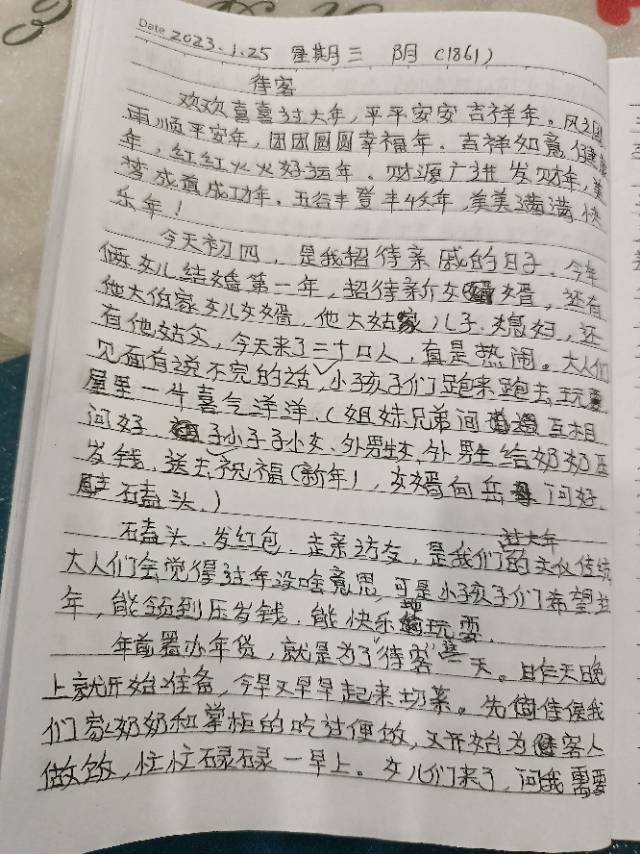 Date 2023.1.25 星期三 阴 (1861)
待客
欢欢喜喜过大年,平平安安吉祥年。风
雨顺平安年,团团圆圆幸福年。吉祥如意健
年,红红火火好运年。财源广进发财年,美
梦成真成功年。五谷丰登丰收年,美美满满快
乐年!
今天初四,是我招待亲戚的日子,今年
俩女儿结婚第一年,招待新女婿,还有
他大伯家女儿女婿,他大姑家儿子.媳妇,还
有他姑父,今天来了二十口人,真是热闹。大人们
见面有说不完的话,小孩子们跑来跑去玩耍
屋里一片喜气洋洋.(姐妹兄弟间互相
问好 子小子子小女、外男生女,外男生给奶奶压
岁钱.送去祝福(新年),女婿向岳母问好.
石盍头.)
石盍头.发红包.走亲访友,是我们过大年的文化传统
大人们会觉得过年没啥意思,可是小孩子们希望过
年,能领到压岁钱.能快乐地玩耍.
年前置办年货,就是为了"待客"这一天。自昨天晚
上就开始准备,今早又早早起来切菜。先伺候我
们家奶奶和掌柜的吃过便饭,又开始为客人
做饭,忙忙碌碌一早上。女儿们来了,问我需要